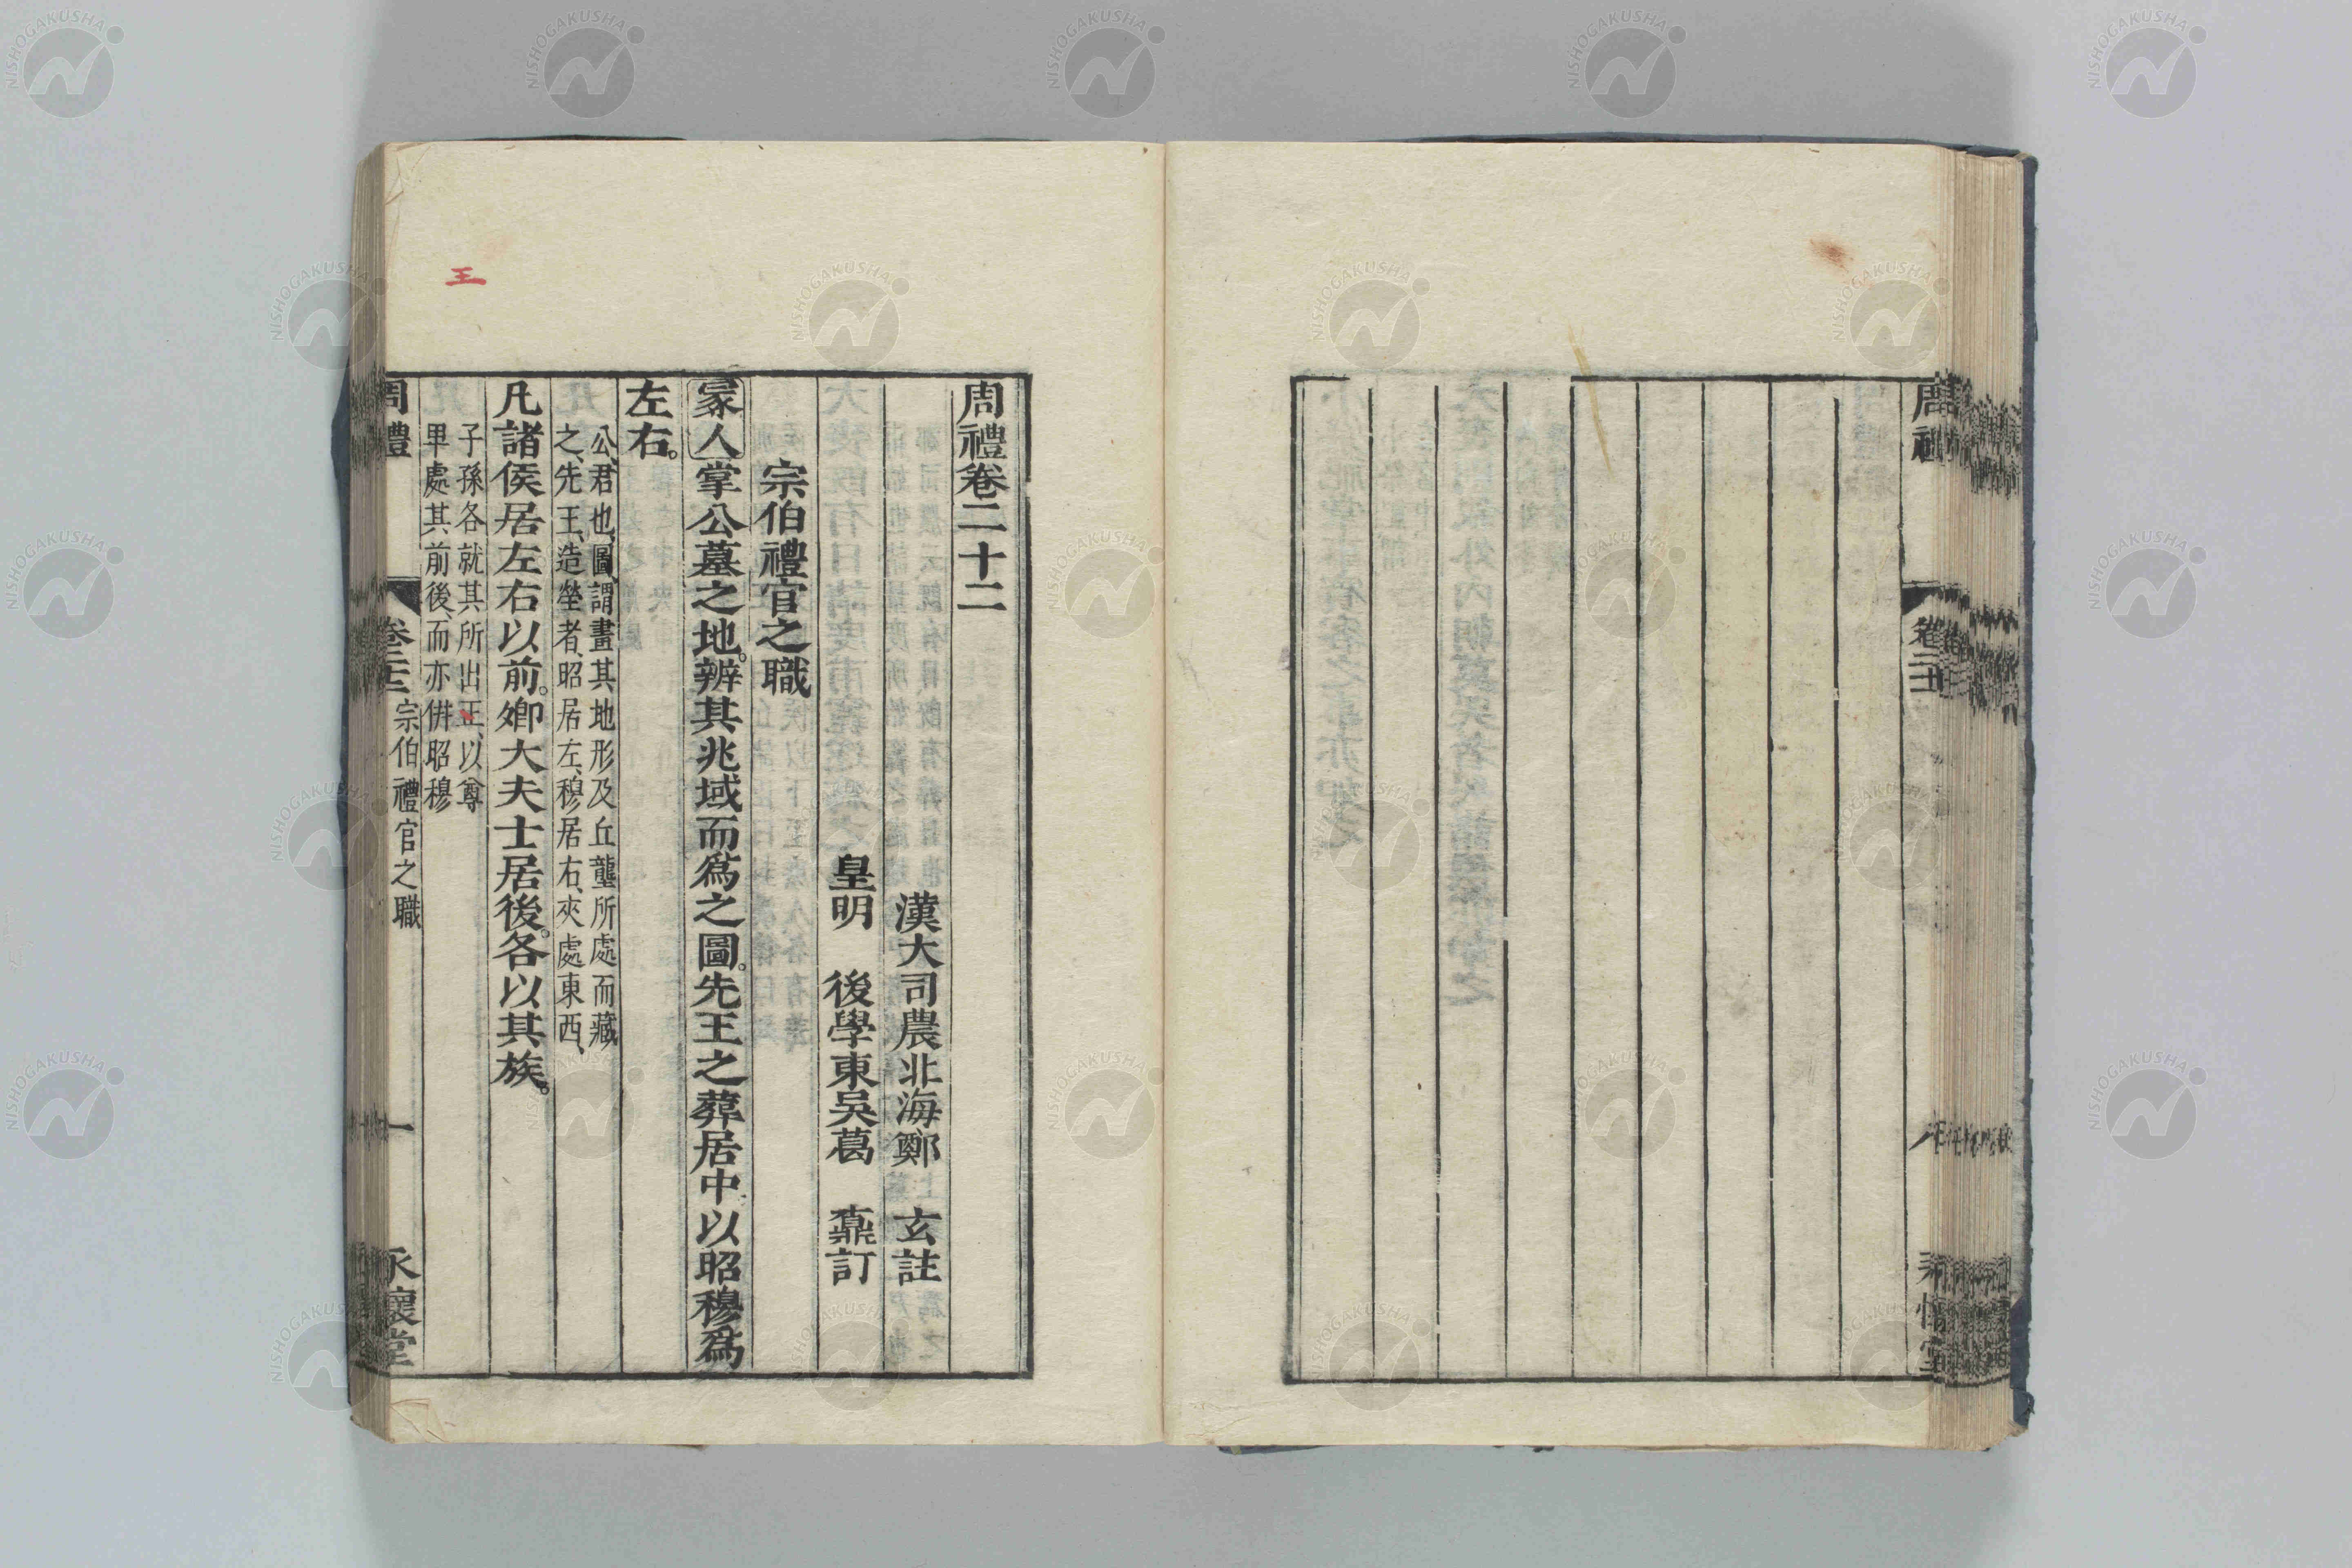 周禮卷二十二
漢大司農北海鄭 玄註
皇明 後學東吳葛 鼒訂
宗伯禮官之職
冢人掌公墓之地。辨其兆域而爲之圖。先王之葬居中。以昭穆爲
左右。
公、君也、圖、謂畫其地形及丘壟所處而藏
之、先王、造塋者、昭居左、穆居右、夾處東西、
凡諸侯居左右以前。卿大夫士居後。各以其族。
子孫各就其所出王、以尊
卑處其前後、而亦併昭穆
周禮
卷二十二
宗伯禮官之職
一
永懷堂
王
NISHOGAKUSHA